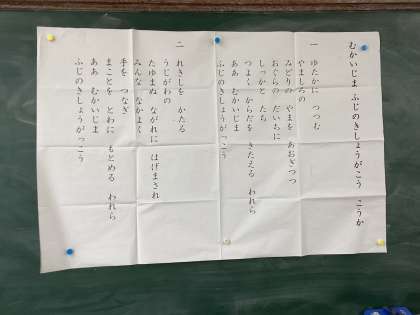 むかいじま ふじのきしょうがこう こうか
一 ゆたかに つつむ
やましろの
みどりの やまを あおぎつつ
おぐらの だいちに
しっかと たち
つよく からだを きたえる われら
ああ むかいじま
ふじのきしょうがっこう
二 れきしを かたる
うじがわの
たゆまぬ ながれに はげまされ
みんな なかよく
手を つなぎ
まことを とわに もとめる われら
ああ むかいじま
ふじのきしょうがっこう